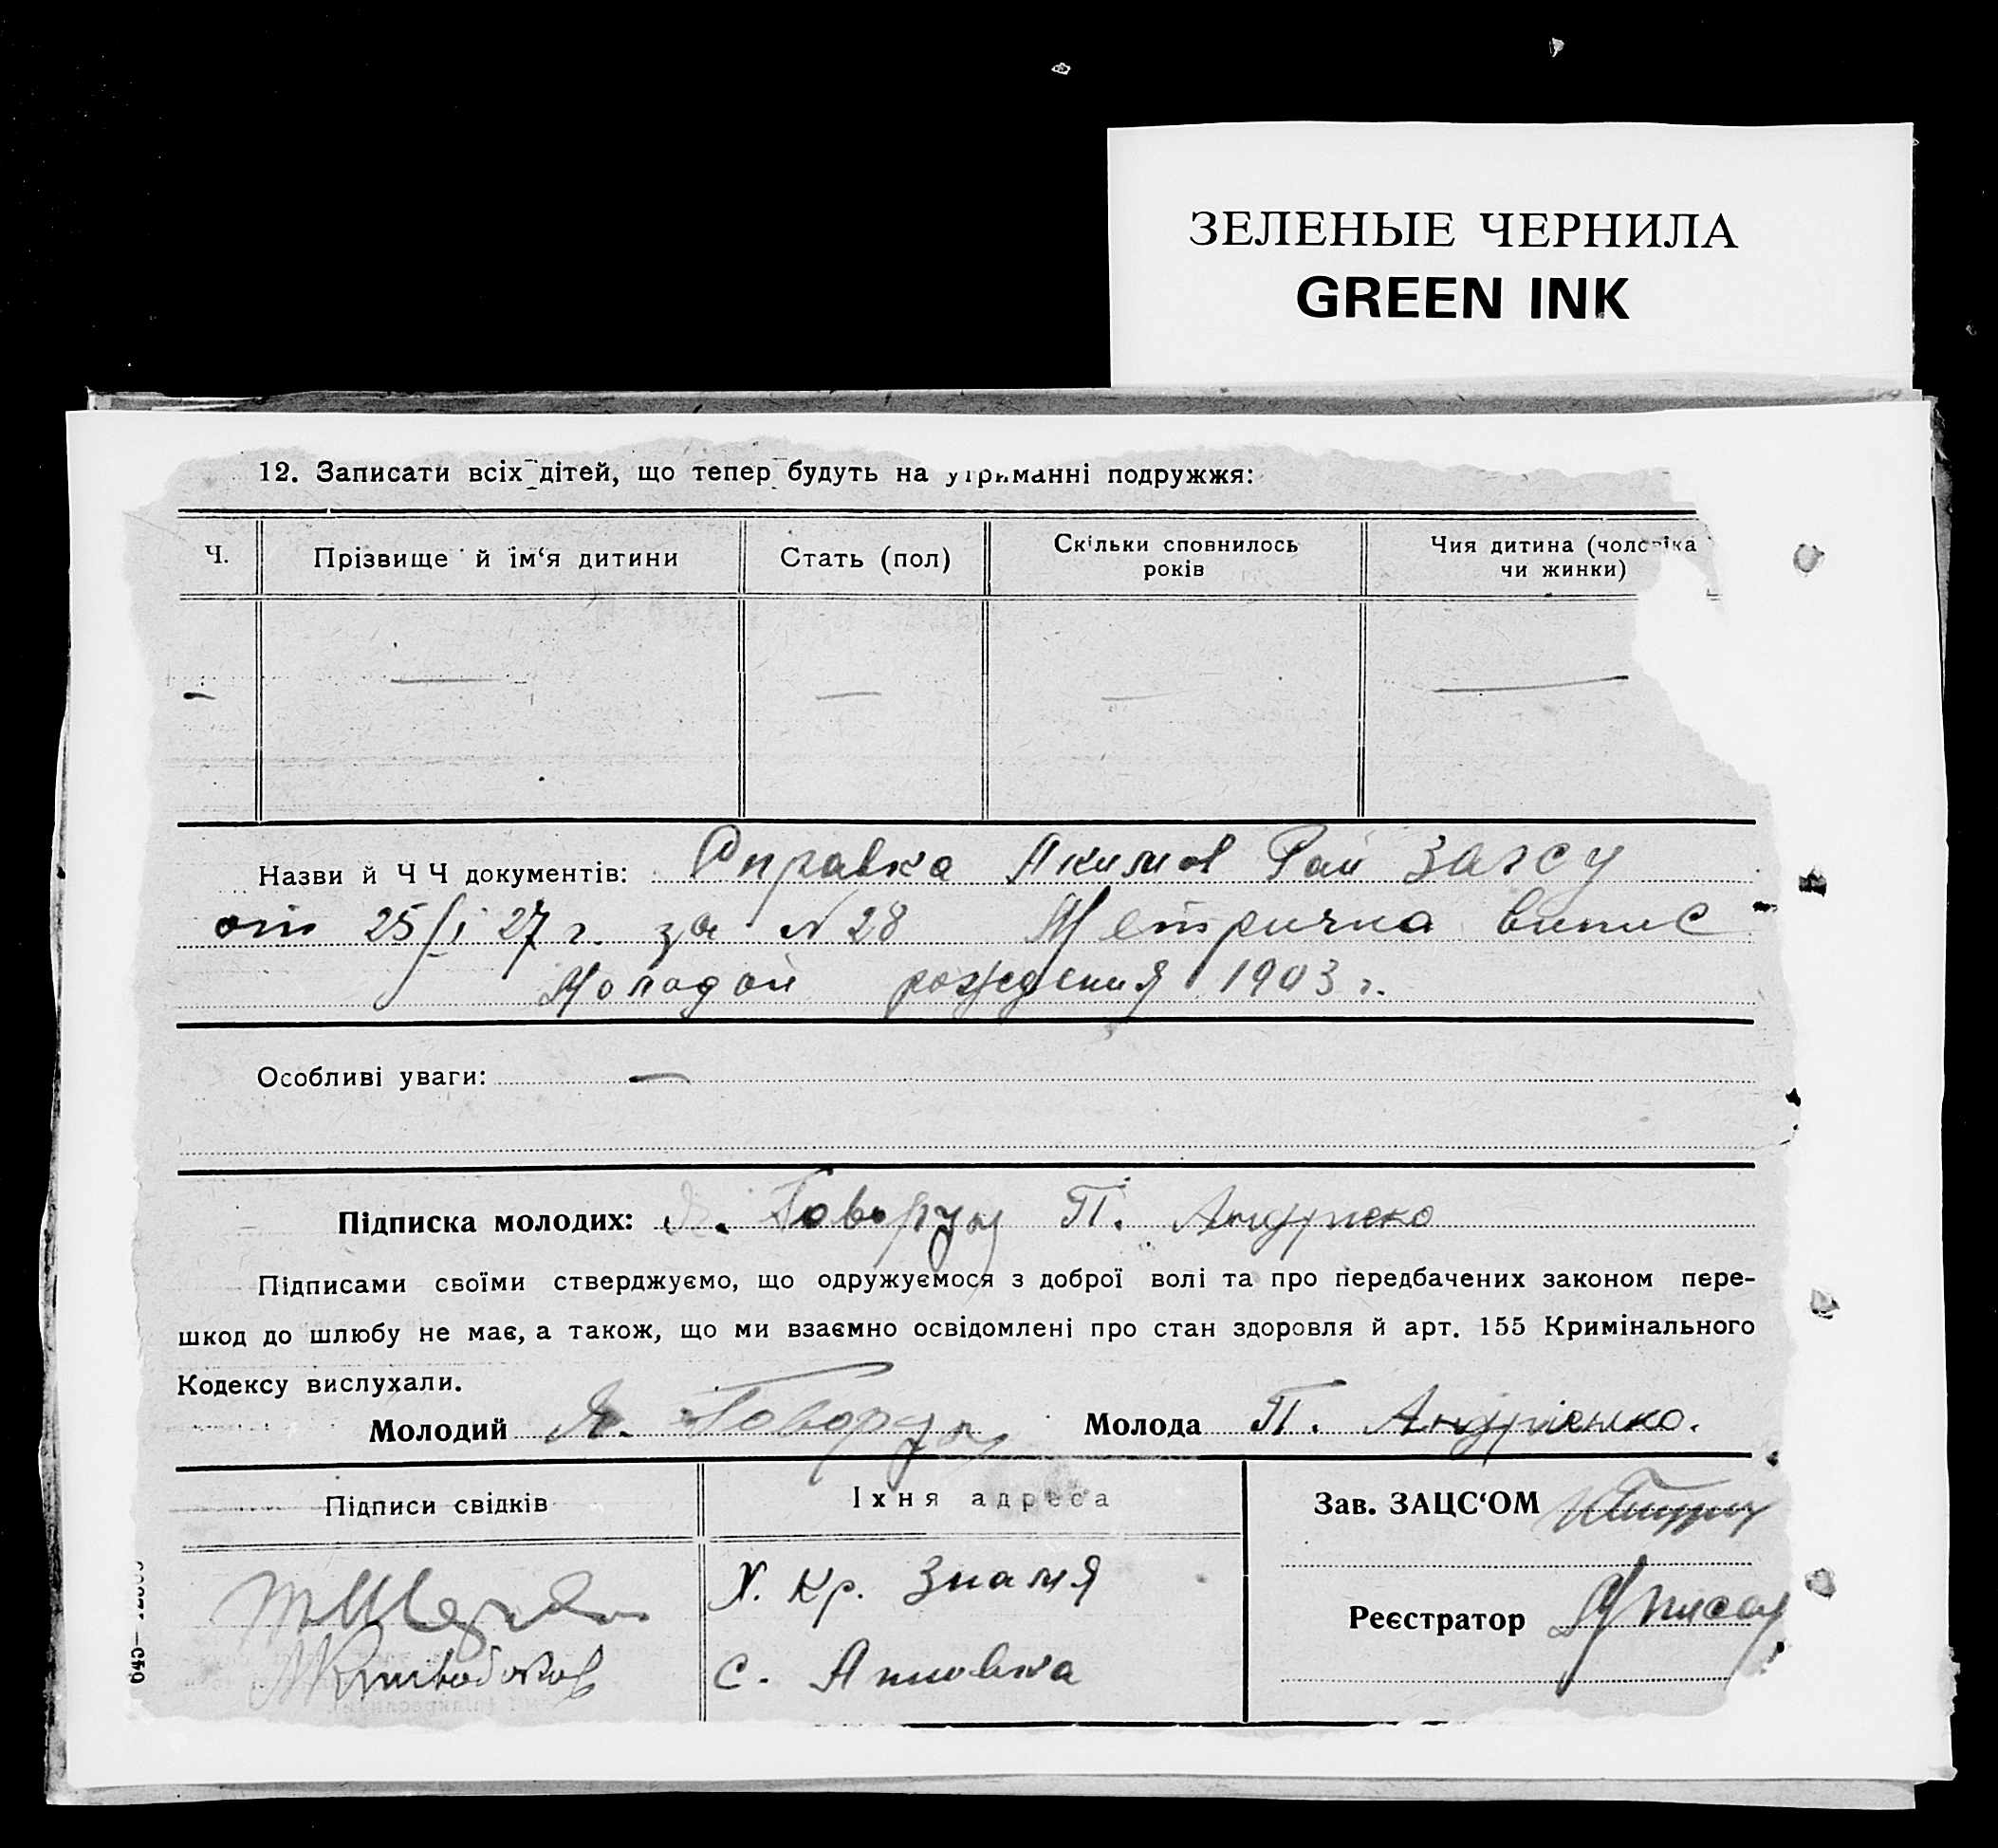 ЗЕЛЕНЫЕ ЧЕРНИЛА
GREEN INK
12. Записати всіх дітей, що тепер будуть на утриманні подружжя:
Ч.
Прізвище й ім‘я дитини
Стать (пол)
Скільки сповнилось
років
Чия дитина (чоловіка
чи жинки)
— — — — —
Назви й Ч Ч документів: Справка Акимов Рай Загсу
от 25/I 27 г. за N 28 Метрична випис
Молодой рождения 1903 г.
Особливі уваги: —
Підписка молодих: Я. Говорун П. Андриєко
Підписами своїми стверджуємо, що одружуємося з доброї волі та про передбачених законом пере-
шкод до шлюбу не має, а також, що ми взаємно освідомлені про стан здоровля й арт. 155 Кримінального
Кодексу вислухали.
Молодий Я. Говорун Молода П. Андрієнко.
Підписи свідків
Їхня адреса
Зав. ЗАЦС‘ОМ
Х. Кр. Знамя
Реєстратор
с. Анновка